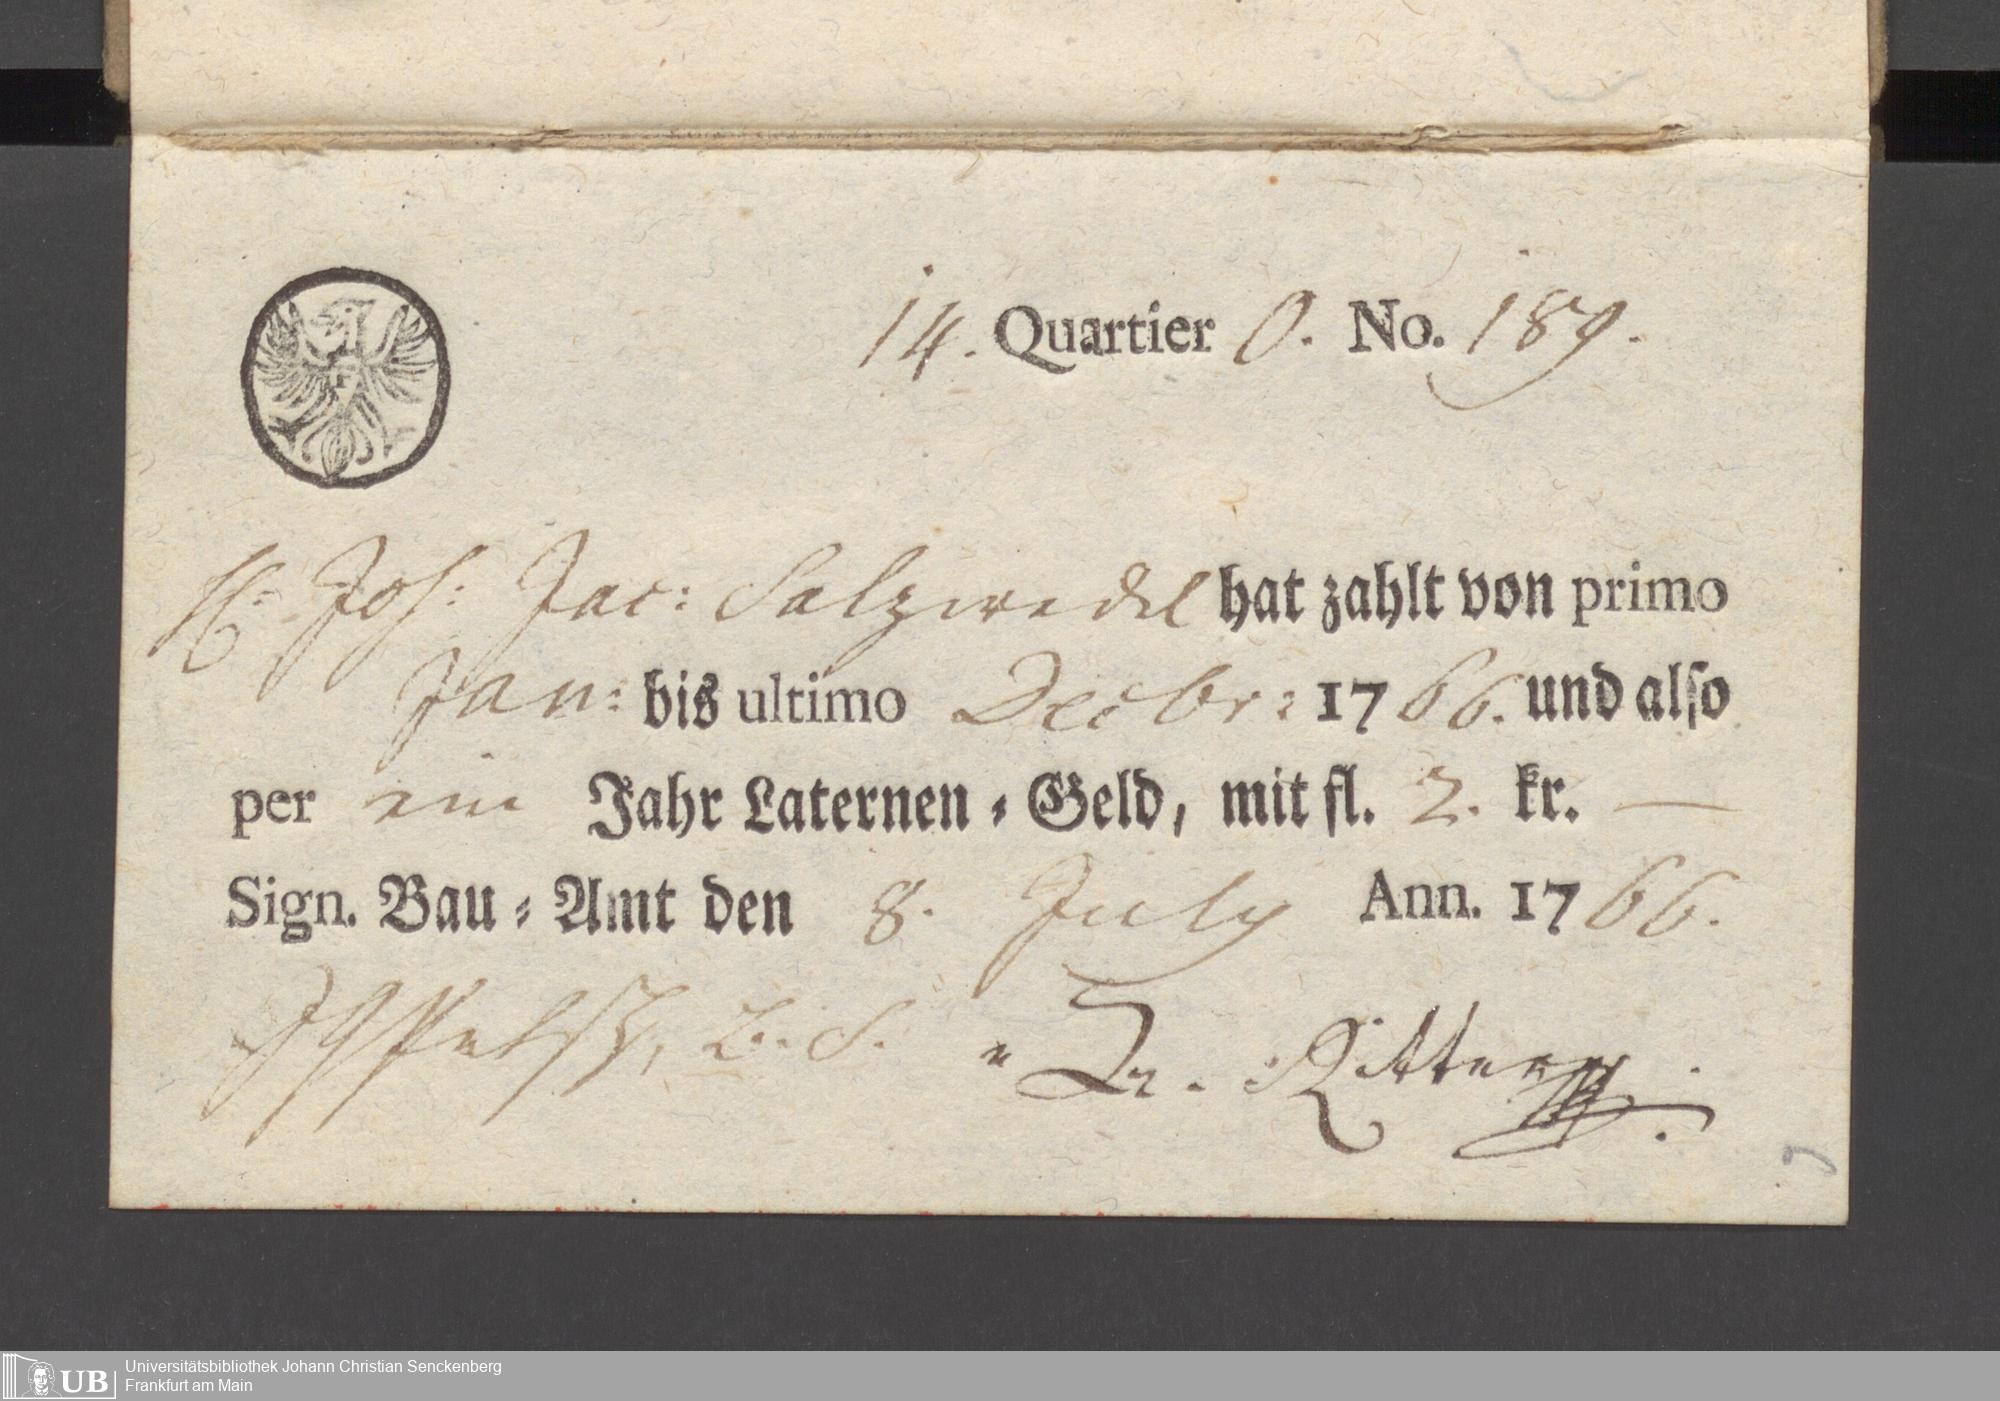 14. Quartier O. No. 189.
H: Joh: Jac: Salzwedel hat zahlt von primo
Jan: bis ultimo Decbr: 1766. und also
per ein Jahr Laternen-Geld, mit fl. 2. kr. —
Sign. Bau-Amt den 8. July Ann. 1766.
B. S. Ritter
UB
Universitätsbibliothek Johann Christian Senckenberg
Frankfurt am Main